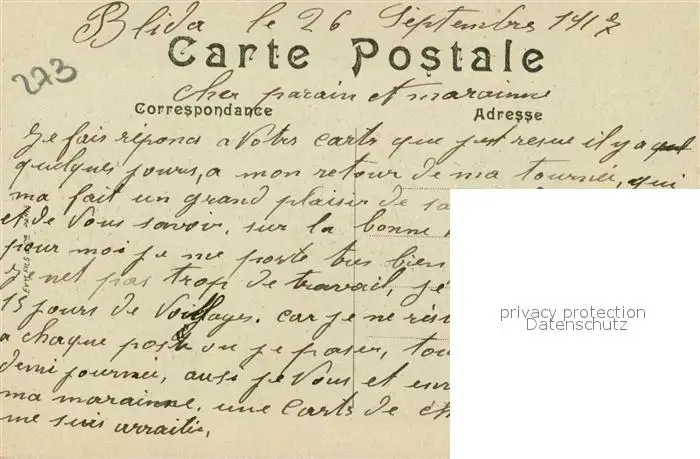 Blida le 26 Septembre 1917
Carte Postale
273
cher parain et marainne
Correspondance
Adresse
Je fais répond a Votre carte que jest resue il y a
quelques jours, a mon retour de ma tournée, qui
ma fait un grand plaisir de
et de Vous savoir, sur la bonne
pour moi je me porte tres bien
Je net pas trop de travail,
15 jours de Voillages. car je ne
a chaque poste ou je passer,
demi journée, ausi je Vous et
ma marainne, une Carte de
me suis arraitée,
privacy protection
Datenschutz